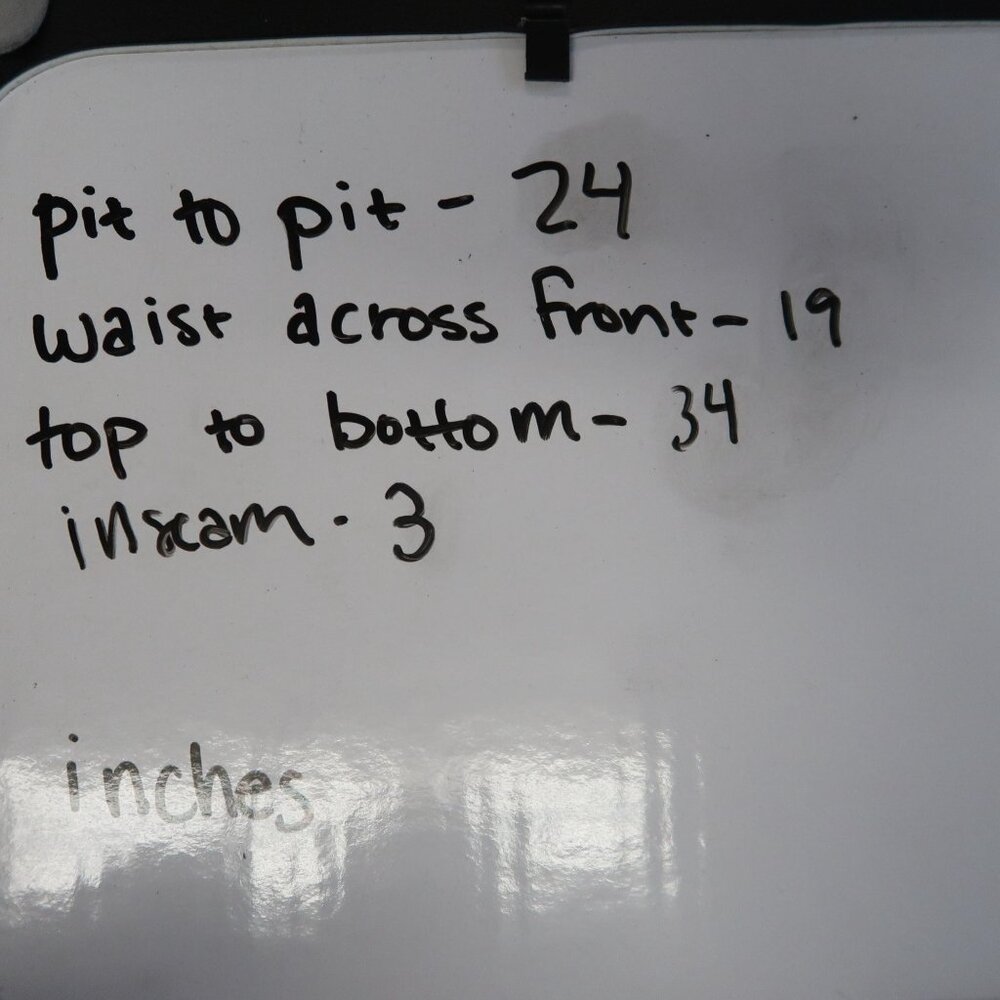 pit to pit - 24
waist across front - 19
top to bottom - 34
inseam - 3
inches